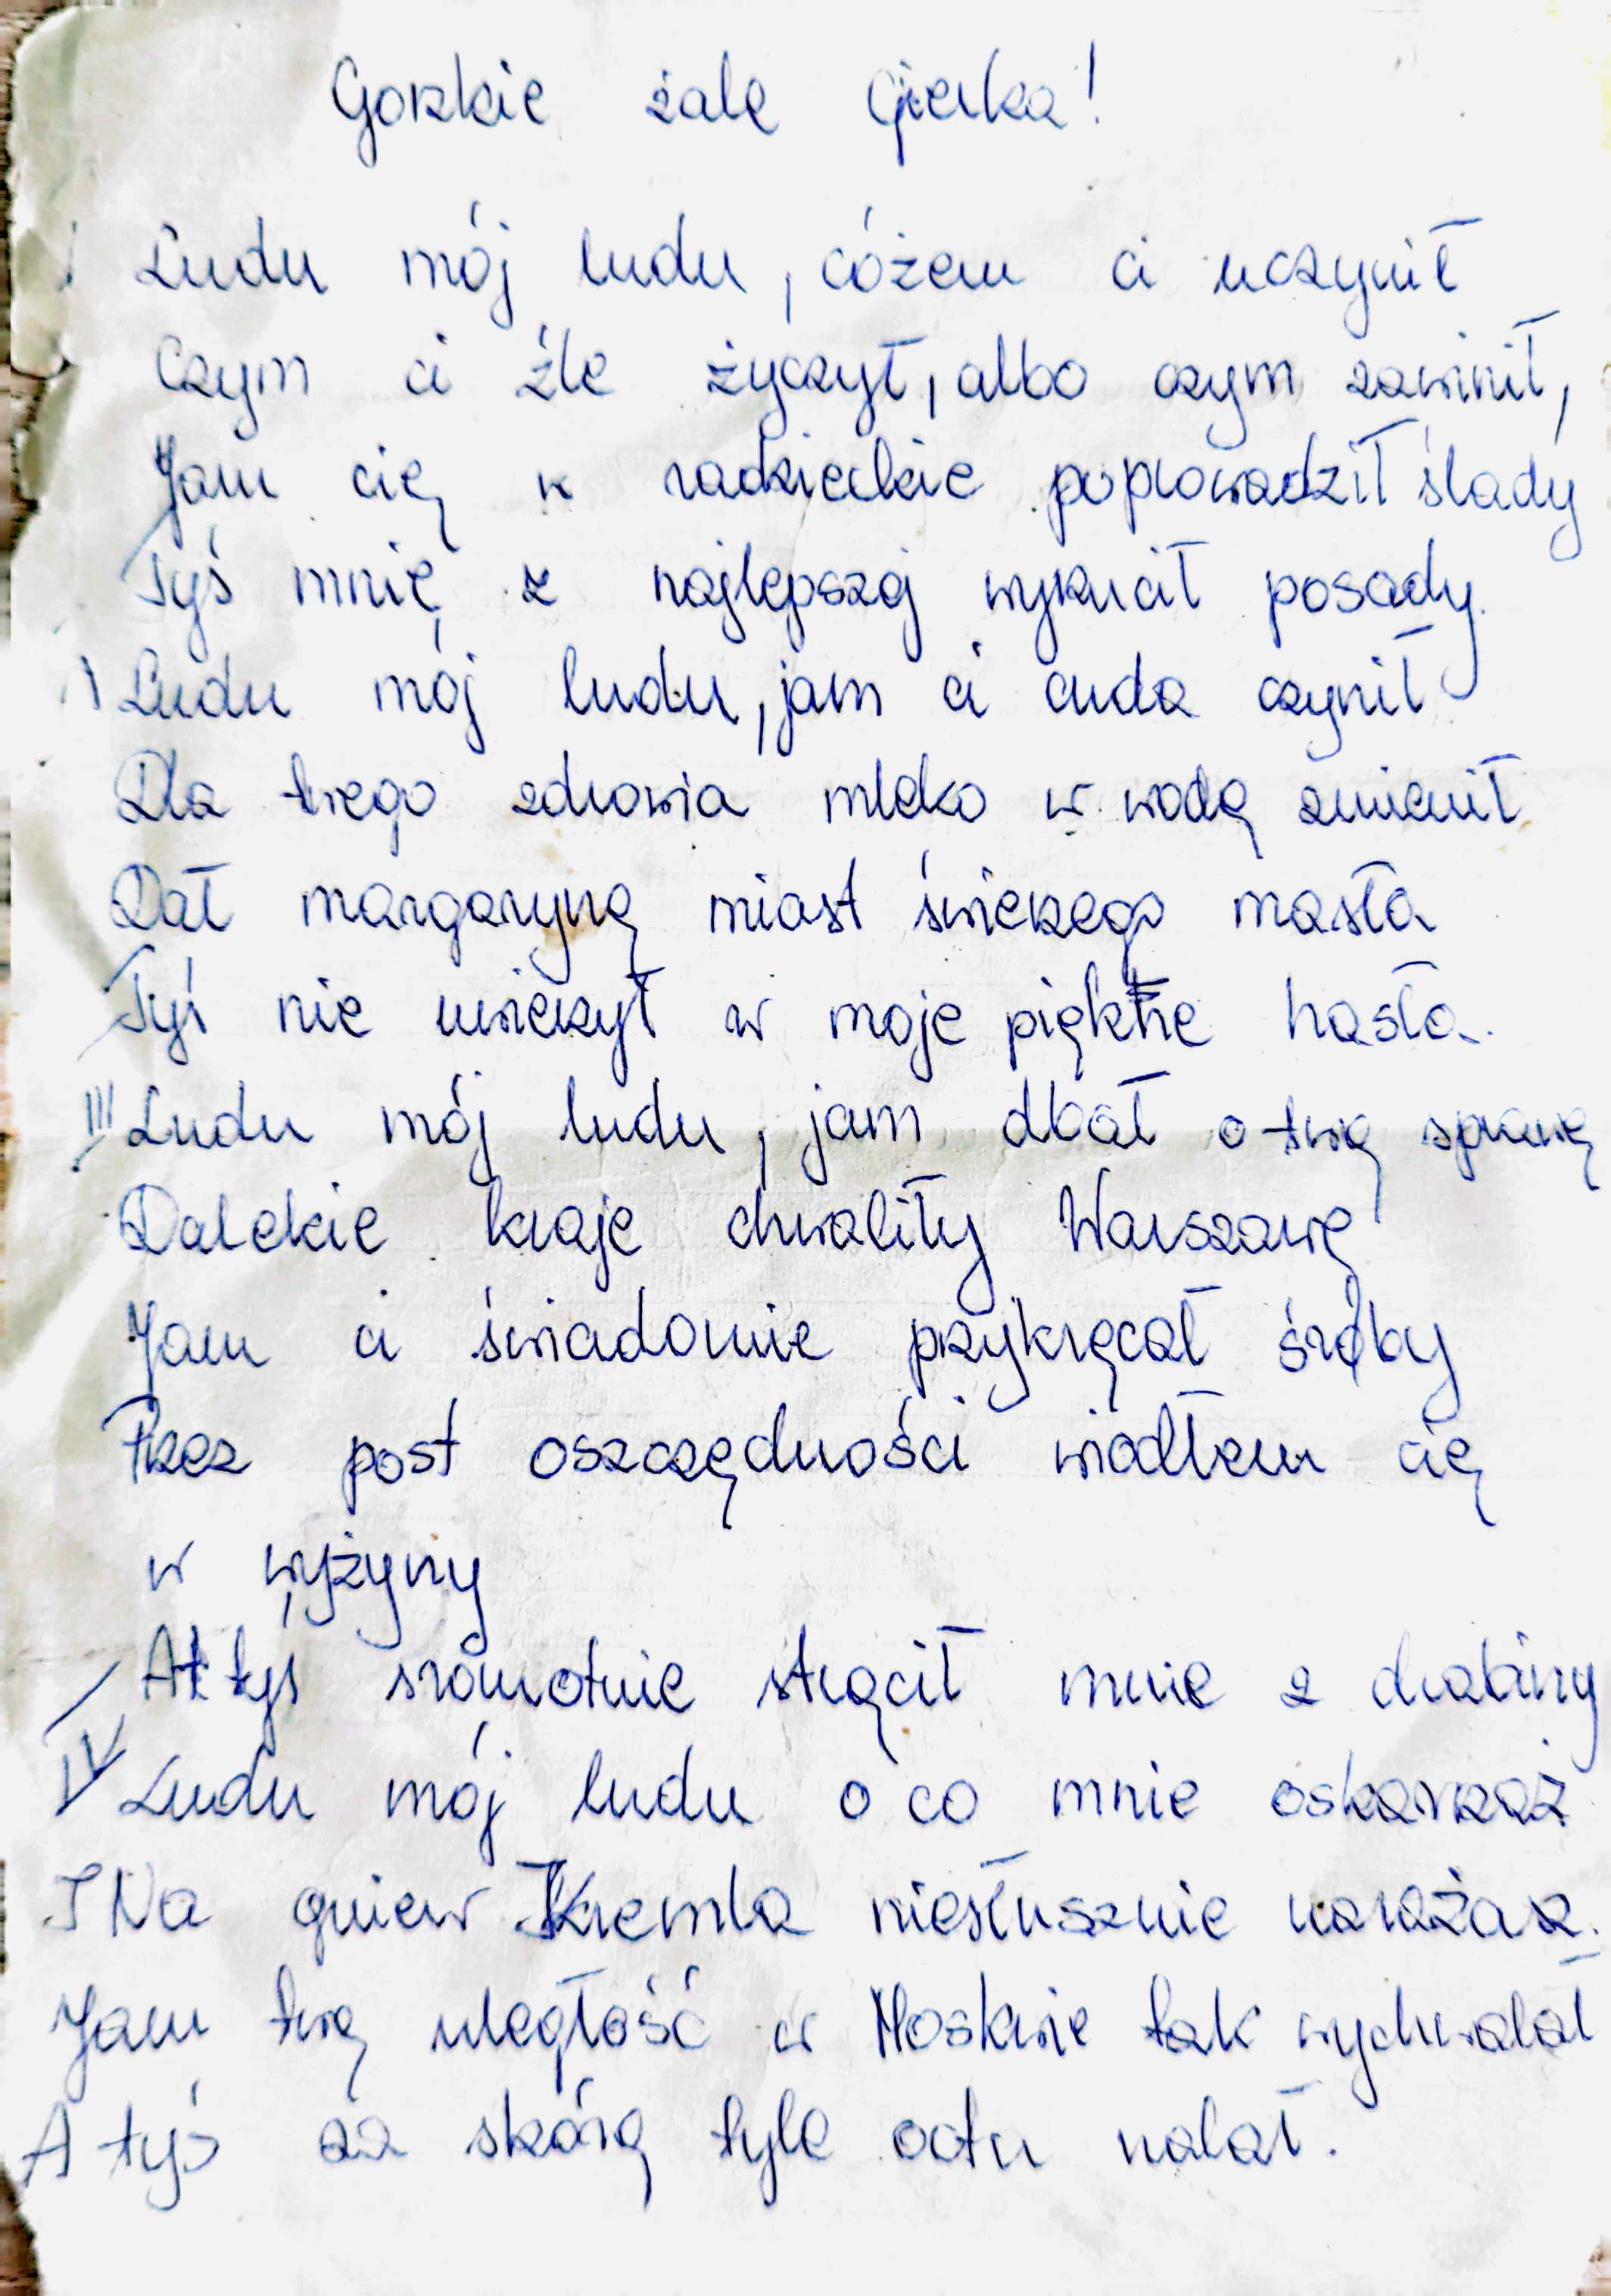 Gorzkie żale Gierka!
I Ludu mój ludu, cóżem ci uczynił
Czym ci źle życzył, albo czym zawinił,
Jam cię w radzieckie poprowadził ślady
Tyś mnie z najlepszej wyrzucił posady.
Ludu mój ludu, jam ci cuda czynił
Dla twego zdrowia mleko w wodę zmienił
Dał margarynę miast świeżego masła
Tyś nie uwierzył w moje piękne hasła.
III Ludu mój ludu, jam dbał o twą sprawę
Dalekie kraje chwaliły Warszawę
Jam ci świadomie przykręcał śruby
Przez post oszczędności wiodłem cię
w wyżyny
A tyś sromotnie strącił mnie z drabiny
IV Ludu mój ludu o co mnie oskarżasz
I Na gniew Kremla niesłusznie narażasz.
Jam twą uległość w Moskwie tak wychwalał
A tyś za skórę tyle octu nalał.